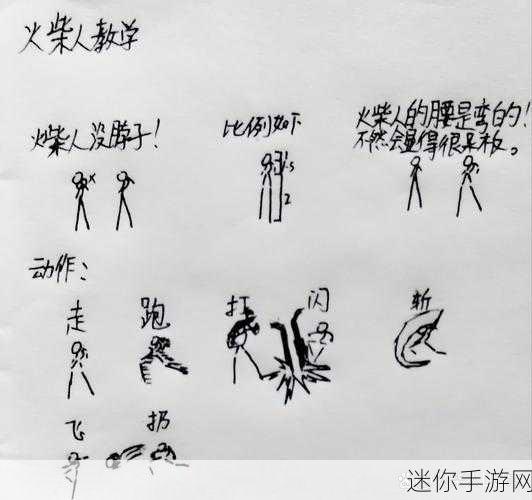 火柴人教学
火柴人没脖子!
比例如下
1.5
2
火柴人的腰是弯的!
不然会显得很呆板。
动作:
走
跑
打
闪
斩
飞
扔
迷你手游网